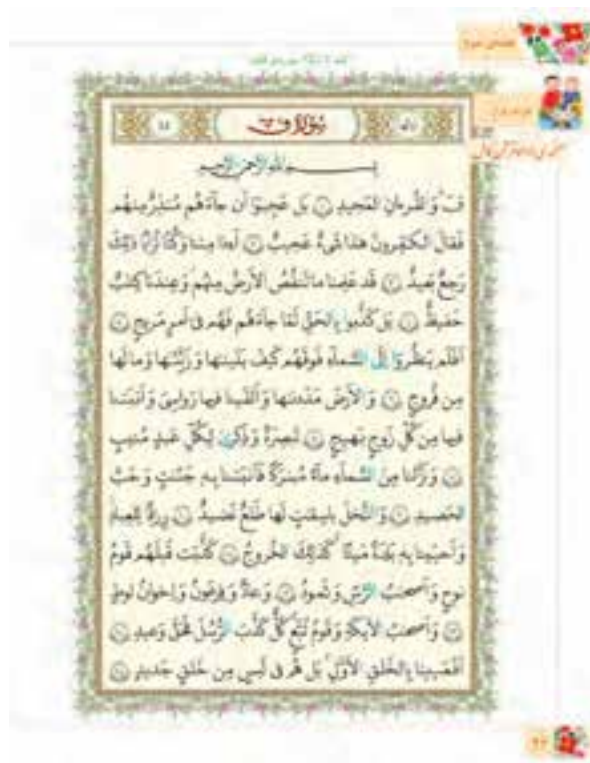 سورة ق
بسم الله الرحمن الرحیم
قٓ وَ القُرءانِ المَجیدِ ۱ بَل عَجِبوٓا اَن جآءَهُم مُنذِرٌ مِنهُم
فَقالَ الکٰفِرونَ هٰذا شَیءٌ عَجیبٌ ۲ اَءِذا مِتنا وَ کُنّا تُرابًا ذٰلِکَ
رَجعٌ بَعیدٌ ۳ قَد عَلِمنا ما تَنقُصُ الاَرضُ مِنهُم وَ عِندَنا کِتٰبٌ
حَفیظٌ ۴ بَل کَذَّبوا بِالحَقِّ لَمّا جآءَهُم فَهُم فی اَمرٍ مَریجٍ ۵
اَفَلَم یَنظُروٓا اِلَی السَّمآءِ فَوقَهُم کَیفَ بَنَینٰها وَ زَیَّنّٰها وَ ما لَها
مِن فُروجٍ ۶ وَ الاَرضَ مَدَدنٰها وَ اَلقَینا فیها رَواسِیَ وَ اَنبَتنا
فیها مِن کُلِّ زَوجٍ بَهیجٍ ۷ تَبصِرَةً وَ ذِکریٰ لِکُلِّ عَبدٍ مُنیبٍ
۸ وَ نَزَّلنا مِنَ السَّمآءِ مآءً مُبٰرَکًا فَاَنبَتنا بِه۪ جَنّٰتٍ وَ حَبَّ
الحَصیدِ ۹ وَ النَّخلَ باسِقٰتٍ لَها طَلعٌ نَضیدٌ ۱۰ رِزقًا لِلعِبادِ
وَ اَحیَینا بِه۪ بَلدَةً مَیتًا کَذٰلِکَ الخُروجُ ۱۱ کَذَّبَت قَبلَهُم قَومُ
نوحٍ وَ اَصحٰبُ الرَّسِّ وَ ثَمودُ ۱۲ وَ عادٌ وَ فِرعَونُ وَ اِخوانُ لوطٍ
۱۳ وَ اَصحٰبُ الاَیکَةِ وَ قَومُ تُبَّعٍ کُلٌّ کَذَّبَ الرُّسُلَ فَحَقَّ وَعیدِ ۱۴
اَفَعَیینا بِالخَلقِ الاَوَّلِ بَل هُم فی لَبسٍ مِن خَلقٍ جَدیدٍ ۱۵